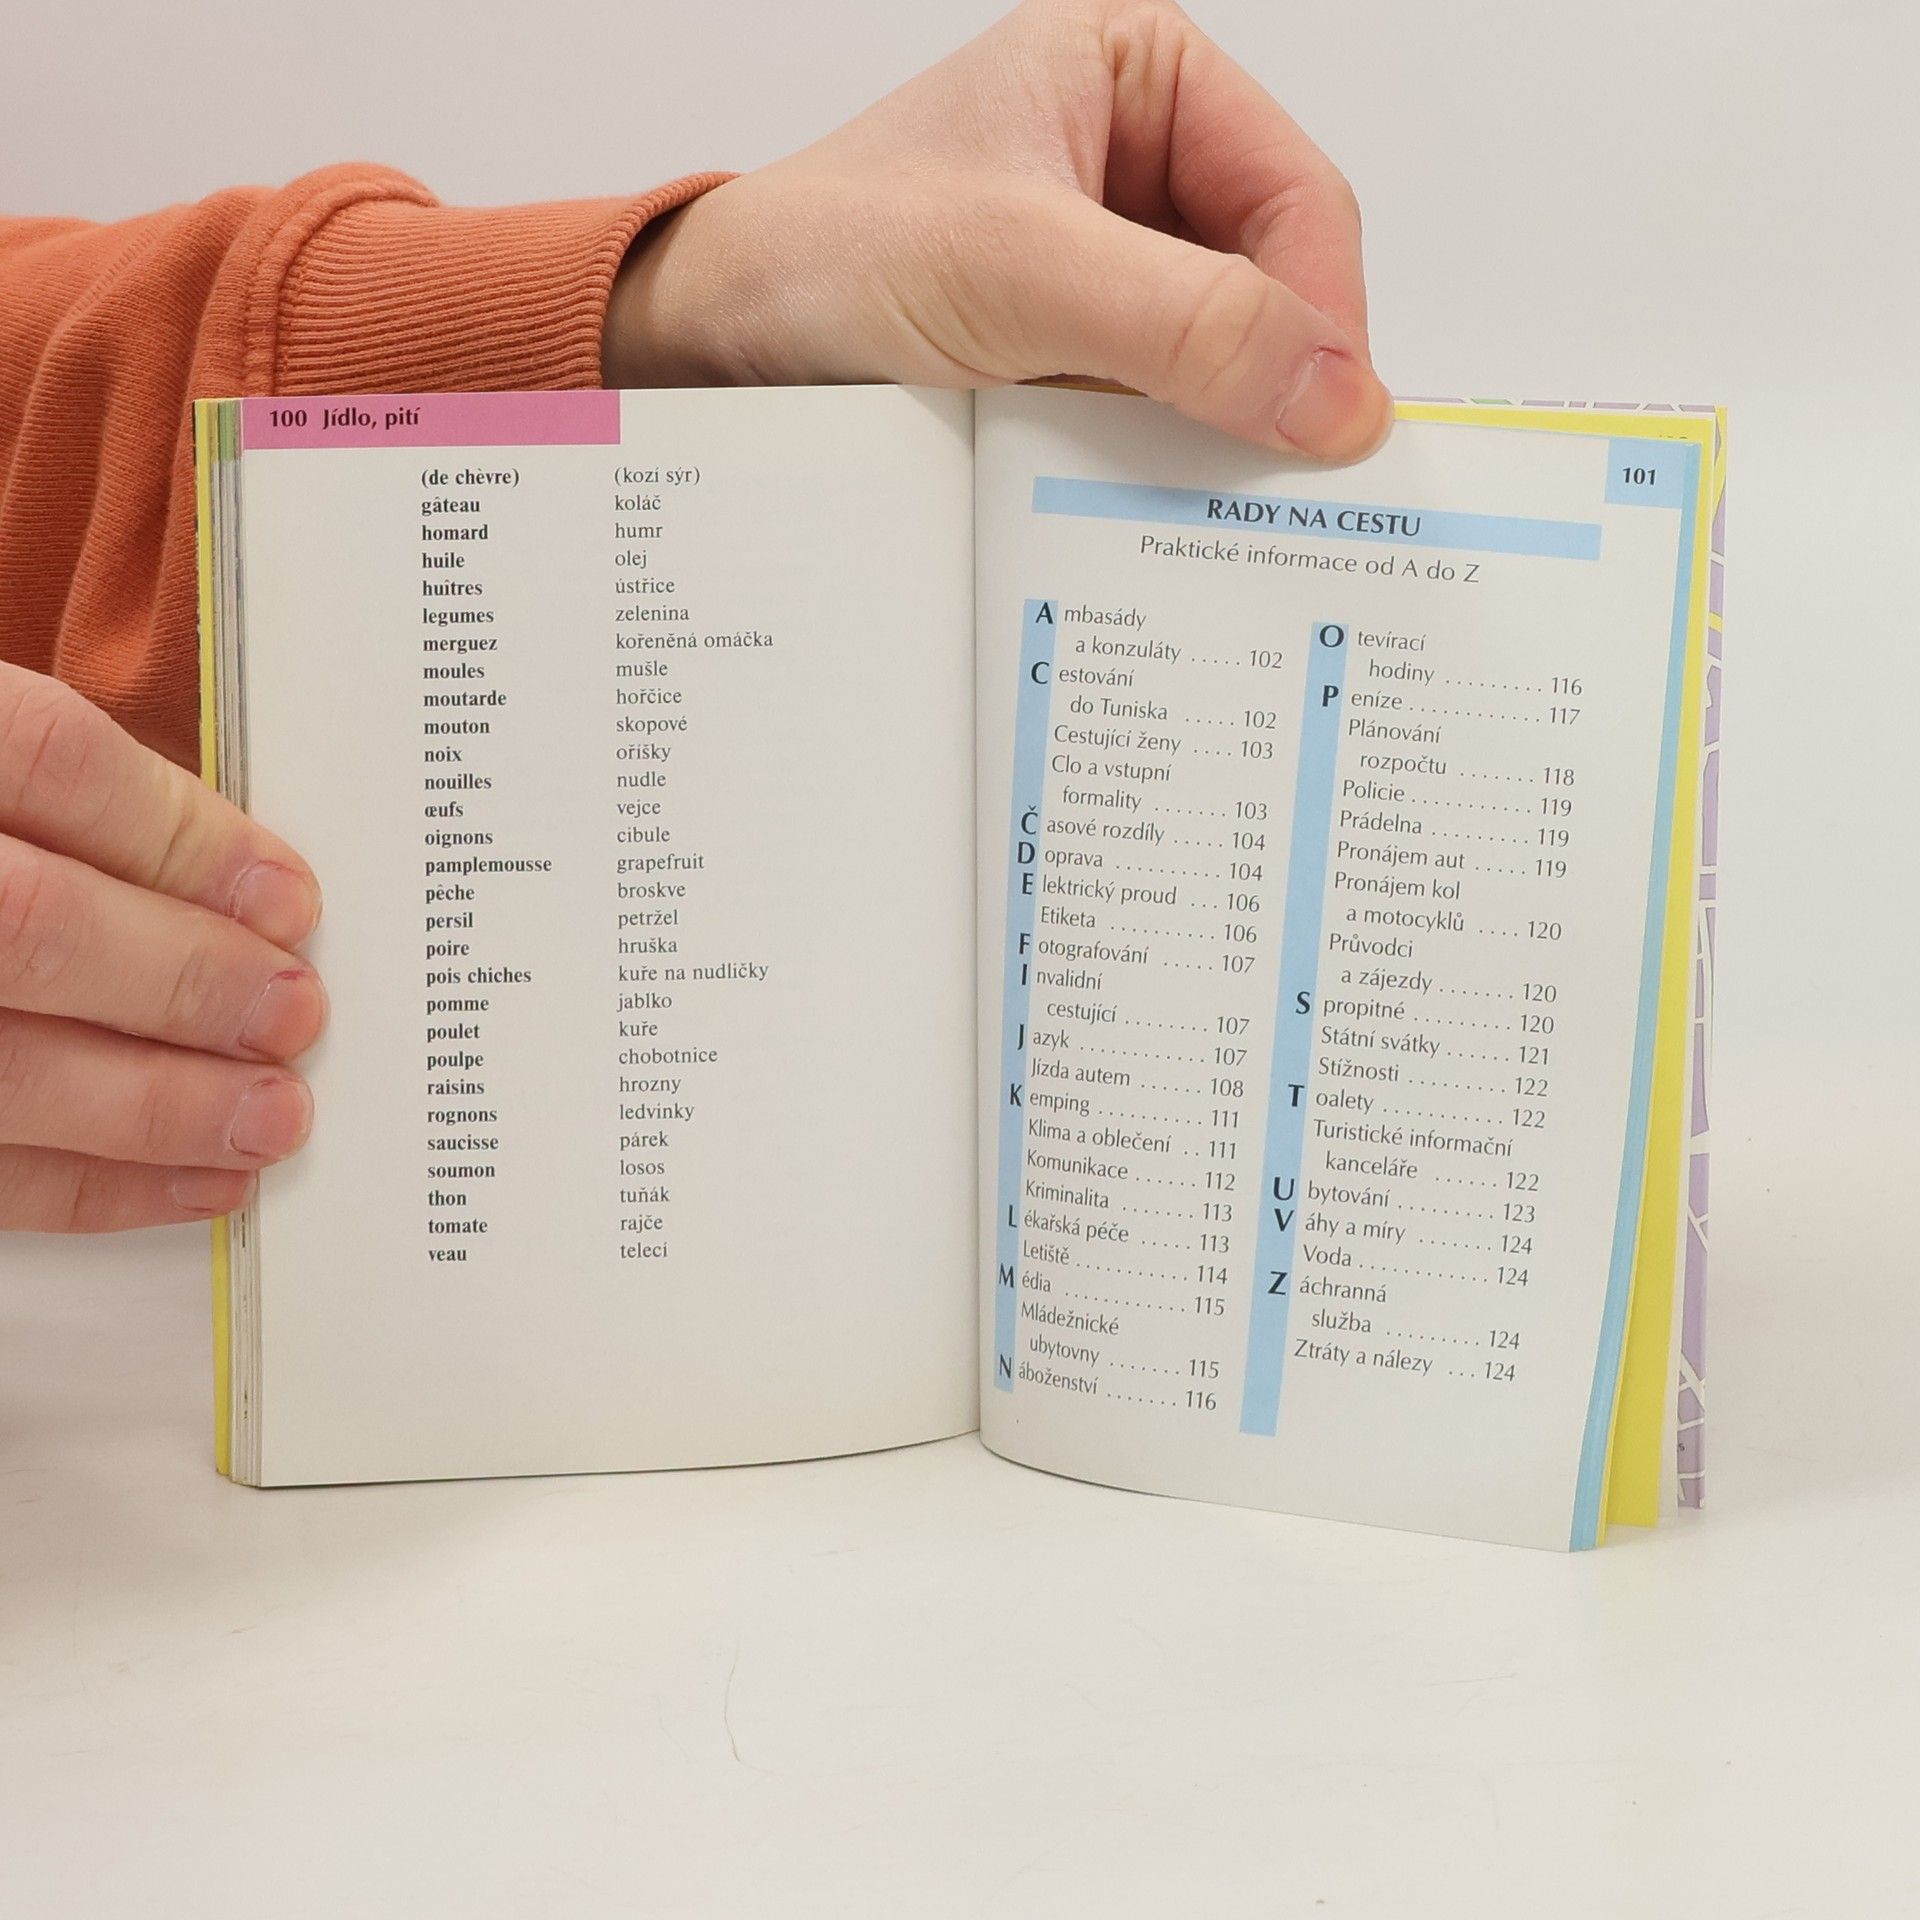 100 Jídlo, pití
(de chèvre) (kozí sýr)
gâteau koláč
homard humr
huile olej
huîtres ústřice
legumes zelenina
merguez kořeněná omáčka
moules mušle
moutarde hořčice
mouton skopové
noix oříšky
nouilles nudle
œufs vejce
oignons cibule
pamplemousse grapefruit
pêche broskve
persil petržel
poire hruška
pois chiches kuře na nudličky
pomme jablko
poulet kuře
poulpe chobotnice
raisins hrozny
rognons ledvinky
saucisse párek
soumon losos
thon tuňák
tomate rajče
veau telecí
101
RADY NA CESTU
Praktické informace od A do Z
Ambasády
a konzuláty ..... 102
Cestování
do Tuniska ..... 102
Cestující ženy .... 103
Clo a vstupní
formality ....... 103
Časové rozdíly ..... 104
Doprava .......... 104
Elektrický proud ... 106
Etiketa .......... 106
Fotografování ..... 107
Invalidní
cestující ........ 107
Jazyk ............ 107
Jízda autem ...... 108
Kemping .......... 111
Klima a oblečení .. 111
Komunikace ...... 112
Kriminalita ....... 113
Lékařská péče ..... 113
Letiště ........... 114
Média ............ 115
Mládežnické
ubytovny ....... 115
Náboženství ....... 116
Otevírací
hodiny ......... 116
Peníze ............ 117
Plánování
rozpočtu ....... 118
Policie ........... 119
Prádelna ......... 119
Pronájem aut ..... 119
Pronájem kol
a motocyklů .... 120
Průvodci
a zájezdy ....... 120
Spropitné ......... 120
Státní svátky ...... 121
Stížnosti ......... 122
Toalety ........... 122
Turistické informační
kanceláře ...... 122
Ubytování ......... 123
Váhy a míry ....... 124
Voda ............ 124
Záchranná
služba ......... 124
Ztráty a nálezy ... 124